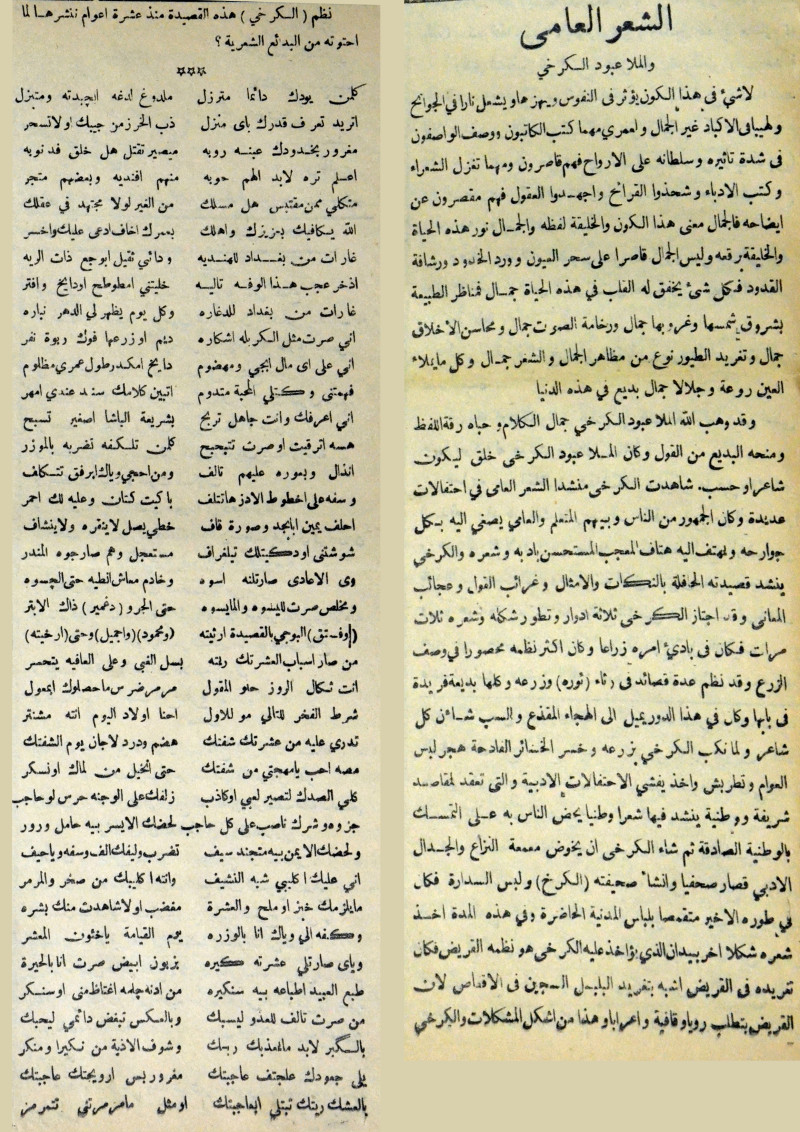 الشعر العامى
والملا عبود الكرخي
لاشئ فى هذا الكون يؤثر فى النفوس ويهزها ويشعل نارا في الجوانح
ولهيبا فى الاكباد غير الجمال ولعمري مهما كتب الكاتبون ووصف الواصفون
فى شدة تاثيره وسلطانه على الارواح فهم قاصرون ومهما تغزل الشعراء
وكتب الادباء وشحذوا القرائح واجهدوا العقول فهم مقصرون عن
ايضاحه فالجمال معنى هذا الكون والخليقة لفظه والجمال نور هذه الحياة
والخليقة برقعه وليس الجمال قاصرا على سحر العيون وورد الخدود ورشاقة
القدود فكل شئ يخفق له القلب في هذه الحياة جمال فمناظر الطبيعة
بشروق شمسها وغروبها جمال ورخامة الصوت جمال ومحاسن الاخلاق
جمال وتغريد الطيور نوع من مظاهر الجمال والشعر جمال وكل مايملاء
العين روعة وجلالا جمال بديع في هذه الدنيا
وقد وهب الله الملا عبود الكرخي جمال الكلام وحباه رقة اللفظ
ومنحه البديع من القول وكان الملا عبود الكرخى خلق ليكون
شاعرا وحسب. شاهدت الكرخى منشدا الشعر العامى في احتفالات
عديدة وكان الجمهور من الناس وبينهم المتعلم والعامي يصغي اليه بكل
جوارحه ويهتف اليه هتاف المعجب المستحسن بادبه وشعره والكرخي
ينشد قصيدته الحافلة بالنكات والامثال وغرائب القول وعجائب
المعانى وقد اجتاز الكرخى ثلاثة ادوار وتطور شكله وشعره ثلاث
مرات فكان فى بادئ امره زراعا وكان اكثر نظمه محصورا في وصف
الزرع وقد نظم عدة قصائد فى رثاء (ثوره) وزرعه وكلها بديعة فريدة
فى بابها وكان في هذا الدور يميل الى الهجاء المقذع والسب شاءن كل
شاعر ولما نكب الكرخي بزرعه وخسر الخسائر الفادحة هجر لبس
العوام وتطربش واخذ يغشي الاحتفالات الادبية والتى تعقد لمقاصد
شريفة ووطنية ينشد فيها شعرا وطنيا يحض الناس به على التمسك
بالوطنية الصادقة ثم شاء الكرخى ان يخوض معمعة النزاع والجدال
الادبي فصار صحفيا وانشاء صحيفته (الكرخ) ولبس السدارة فكان
في طوره الاخير متقمصا بلباس المدنية الحاضرة وفي هذه المدة اخذ
شعره شكلا اخر بيدان الذي يؤاخذ عليه الكرخى هو نظمه القريض فكان
تغريده فى القريض اشبه بتغريد البلبل السجين فى الاقفاص لان
القريض يتطلب رويا وقافية واعرابا وهذا من اشكل المشكلات والكرخي
نظم (الكرخي) هذه القصيدة منذ عشرة اعوام ننشرها لما
احتوته من البدائع الشعرية ؟
***
كلمن يودك دائما متزلزل ملدوغ لدغه ايجبدته ومتبزل
اتريد تعرف قدرك باى منزل ذب الخرز من جيبك اولاتسحر
مغرور بخدودك عينه روبه ميصير تقتل هل خلق فد نوبه
اعلم تره لابد الهم حوبه منهم افنديه وبعضهم متجر
متكلي ممن مقتبس هل مسلك من الغير لولا مجتهد في عقلك
الله يكافيك بعزيزك واهلك بعمرك اخاف ادعى عليك واخسر
غارات من بغداد للهنديه ودائي ثقيل ابوجع ذات الريه
اذخر عجب هذا الوفه تاليه خليتني امطوطح اردايخ وافتر
غارات من بغداد للدغاره وكل يوم يظهر لي الدهر نياره
اني صرت مثل الكربله اشكاره ديم او زرعها فوك ربوة نفر
اني على اى مال ايجي ومهضوم دايخ امكدر طول عمري مظلوم
فهمتنى وكتلي المحبة متدوم اتبين كلامك سند عندي امهر
اني اعرفك وانت جاهل تربج بشريعة الباشا اصغير تسبح
هسه اترقيت اوصرت تتبحبح كلمن تلكفه تضربه بالموزر
انذال وبموره عليهم تالف ومن احجي وياك ابرفق تتكالف
وسفه على اخطوط الادزهاتتلف باكيت كتان وعليه لك احمر
احلف يمين ابايجد وصورة قاف خطي يصل لاينقره ولاينشاف
شوشتنى اودكيتلك تيلغراف مستعجل وهم صارجوه المندر
وى الاعادى صارتلنه اسوه وخادم معاش انطيه حتى الجسوه
ومخلص صرت لليسوه والمايسوه حتى الجرو (دغمير) ذاك الابتر
(اوفتق) البوجي بالقصيدة ارثيته (ومحمود) (واجميل) وحتى (ارخيته)
من صار اسباب العشرتك ريته بسل الفبي وعلى العافيه يتحسر
انت شكال الروز حلو المقول مرمر ضرس ماحصلوك ايمعول
شرط الفخر للتالي مو للاول احنا اولاد اليوم انته مشنتر
تدري عليه من عشرتك شفتك هضم ودرد لاجان يوم الشفتك
مصه احب يامهجتي من شفتك حتى انخبل من لماك اونسكر
كلي الصدك لتصير لعبي اوكاذب زلفك على الوجنه حرس لوحاجب
جزوه وشرك ناصب على كل حاجب لحضك الايسر بيه حامل ورور
ولحضك الايمن بيه متجند سيف تضرب وليفك الف وسفه وياحيف
اني عليك اكلبي شبه النشيف وانته اكليبك من صخر والمرمر
مايلزمك خبز او ملح والعشرة مغضب اولاشاهدت منك بشره
وكفه الي وياك انا بالوزره يوم القيامة ياخئون المعشر
وياى صارتلي عشرته كيره بزبون ابيض صرت انا بالحيرة
طبع العبيد اطباعه بيه سنكيره من ادنه جلمه اغتاظ منى اوسنكر
من صرت تالف للعدو ليسبك وبالعكس تبغض دائمي ليحبك
بالكبر لابد مايعذبك ربك وشوف الاذية من نكيرا ومنكر
يلي جعودك علجتف عاجبتك مغرور بس ارويحتك عاجبتك
بالعشك ريتك تبتلي ابعاجبتك اومثل مامرمرتني تتمرمر